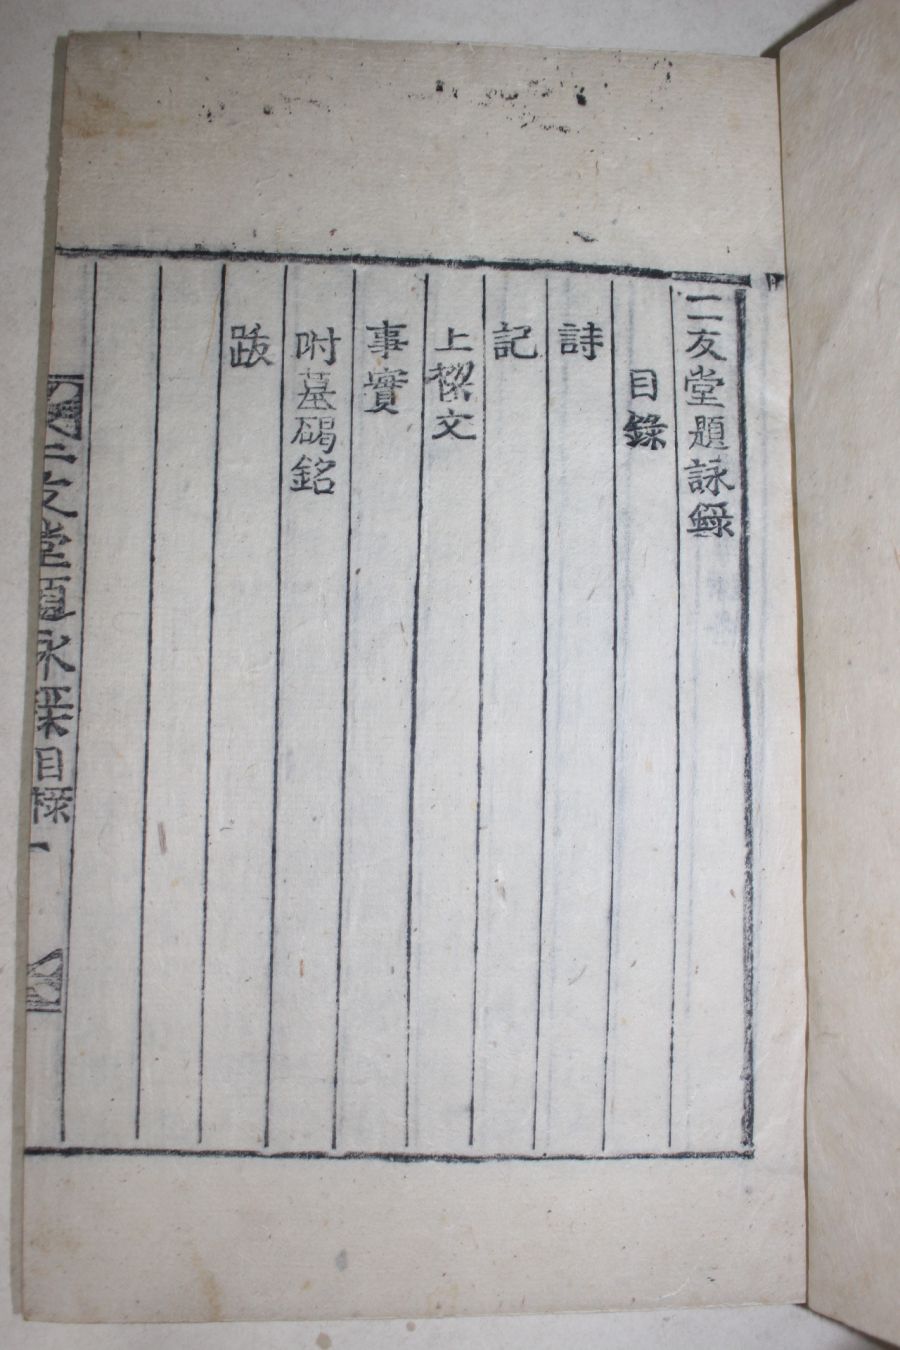 二友堂題詠録
目錄
詩
記
上樑文
事實
附墓碣銘
跋
二友堂題詠錄目錄 一